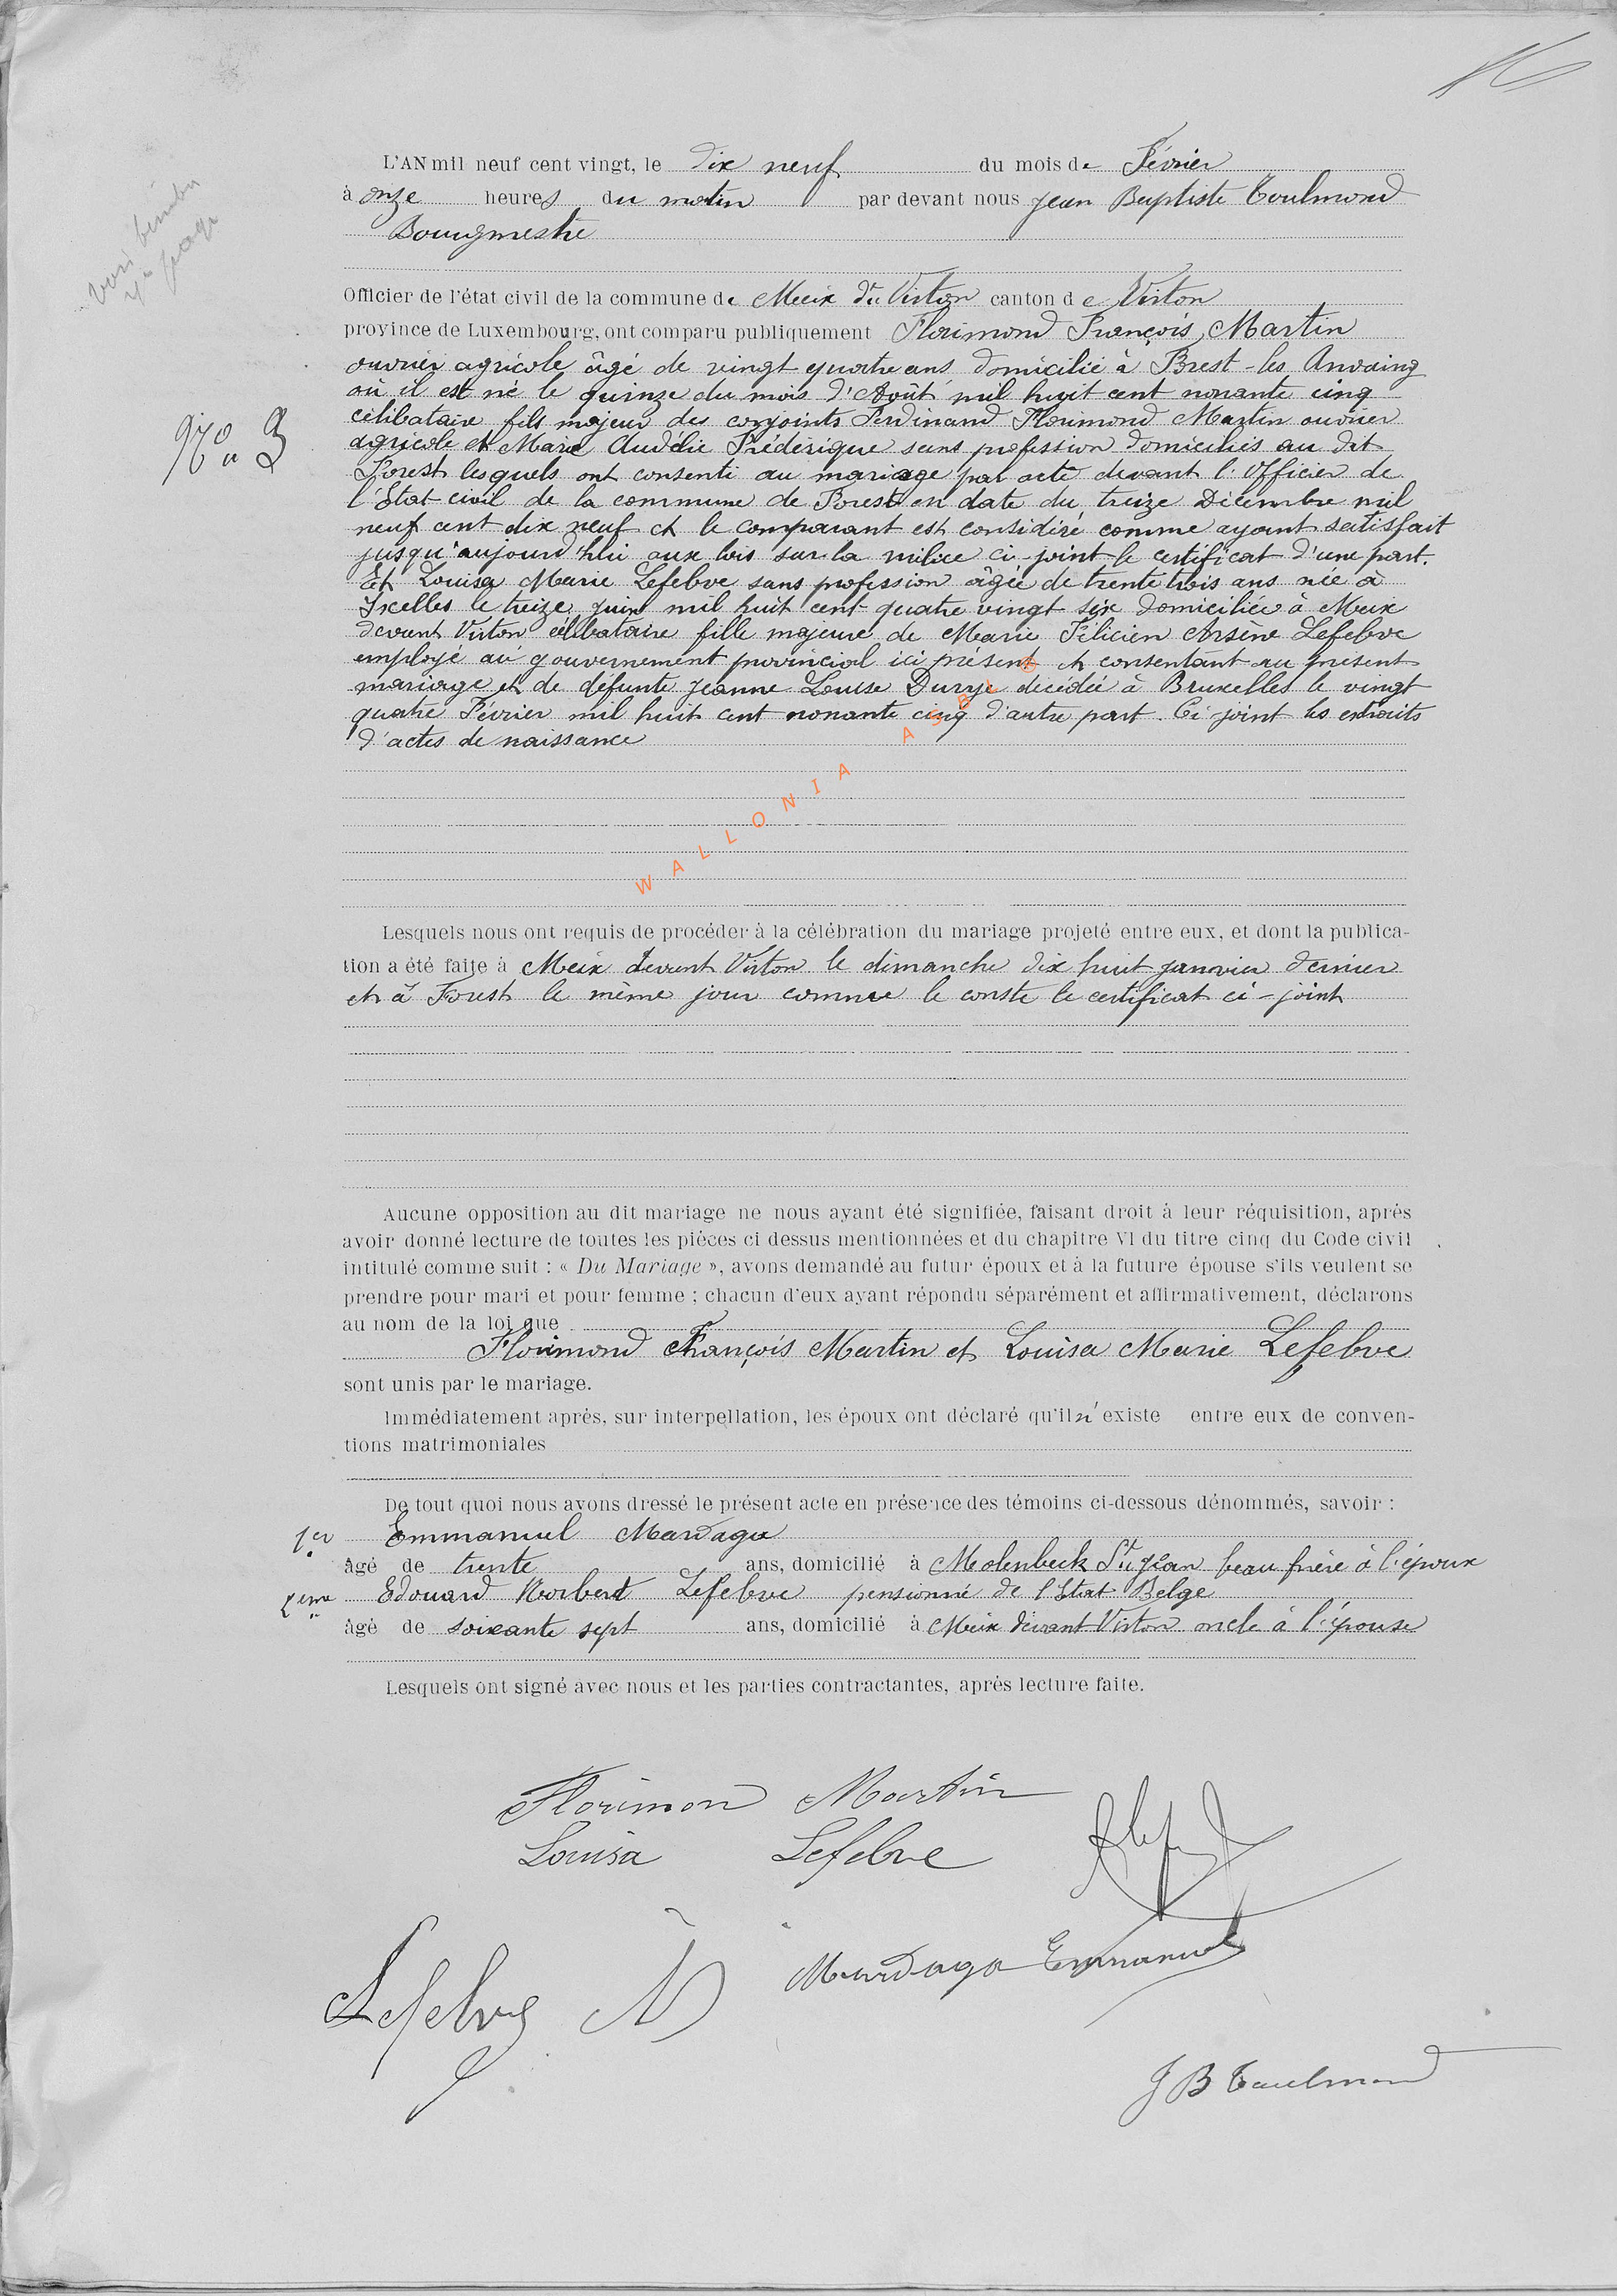 L'AN mil neuf cent vingt, le dix neuf du mois de Février
à onze heures du matin par devant nous Jean Baptiste Toulmond
Bourgmestre
Officier de l'état civil de la commune de Meix dt Virton canton de Virton
province de Luxembourg, ont comparu publiquement Florimond François Martin
ouvrier agricole âgé de vingt quatre ans domicilié à Brest-les Anvaing
où il est né le quinze du mois d'Août mil huit cent nonante cinq
célibataire fils majeur des conjoints Ferdinand Florimond Martin ouvrier
N° 3
agricole et Marie Audélie Frédérique sans profession domiciliés au dit
Forest lesquels ont consenti au mariage par acte devant l'Officier de
l'Etat civil de la commune de Forest en date du treize Décembre mil
neuf cent dix neuf et le comparant est considéré comme ayant satisfait
jusqu'aujourd'hui aux lois sur la milice ci-joint le certificat d'une part.
Et Louisa Marie Lefebve sans profession âgée de trente trois ans née à
Ixelles le treize juin mil huit cent quatre vingt six domiciliée à Meix
devant Virton célibataire fille majeure de Marie Félicien Arsène Lefebve
employé au gouvernement provincial ici présent et consentant au présent
mariage et de défunte Jeanne Louise Durye décédée à Bruxelles le vingt
quatre Février mil huit cent nonante cinq d'autre part. Ci-joint les extraits
d'actes de naissance
WALLONIA ASBL
Lesquels nous ont requis de procéder à la célébration du mariage projeté entre eux, et dont la publica-
tion a été faite à Meix devant Virton le dimanche dix huit janvier dernier
et à Forest le même jour comme le conste le certificat ci-joint
Aucune opposition au dit mariage ne nous ayant été signifiée, faisant droit à leur réquisition, après
avoir donné lecture de toutes les pièces ci dessus mentionnées et du chapitre VI du titre cinq du Code civil
intitulé comme suit : « Du Mariage », avons demandé au futur époux et à la future épouse s'ils veulent se
prendre pour mari et pour femme ; chacun d'eux ayant répondu séparément et affirmativement, déclarons
au nom de la loi que
Florimond François Martin et Louisa Marie Lefebve
sont unis par le mariage.
Immédiatement après, sur interpellation, les époux ont déclaré qu'il n'existe entre eux de conven-
tions matrimoniales
De tout quoi nous avons dressé le présent acte en présence des témoins ci-dessous dénommés, savoir :
1er Emmanuel Mardaga
âgé de trente ans, domicilié à Molenbeek St Jean beau frère à l'époux
2ème Edouard Norbert Lefebve pensionné de l'Etat Belge
âgé de soixante sept ans, domicilié à Meix devant Virton oncle à l'épouse
Lesquels ont signé avec nous et les parties contractantes, après lecture faite.
Florimon Martin
Louisa Lefebve
Mardaga Emmanuel
Lefebve N
J B Toulmond